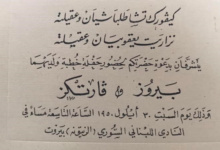 كيفورك تشاطلباشيان وعقيلته
نزاريت يعقوبيان وعقيلته
يتشرفان بدعوة حضرتكم لحضور حفلة خطبة ولديهما
بيروز و فارتكز
وذلك يوم السبت ٣٠ أيلول ٩٥٠ الساعة التاسعة مساء في
النادي اللبناني السوري (الزيتونة) بيروت